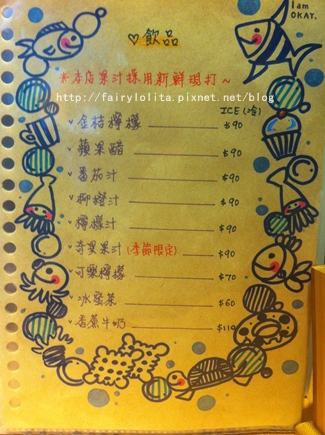 I am
OKAY.
♡飲品
*本店果汁採用新鮮現打~
http://fairylolita.pixnet.net/blog
ICE(冷)
金桔檸檬 $90
蘋果醋 $90
番茄汁 $90
柳橙汁 $90
檸檬汁 $90
奇異果汁(季節限定) $90
可樂檸檬 $70
冰蜜茶 $60
香蕉牛奶 $110